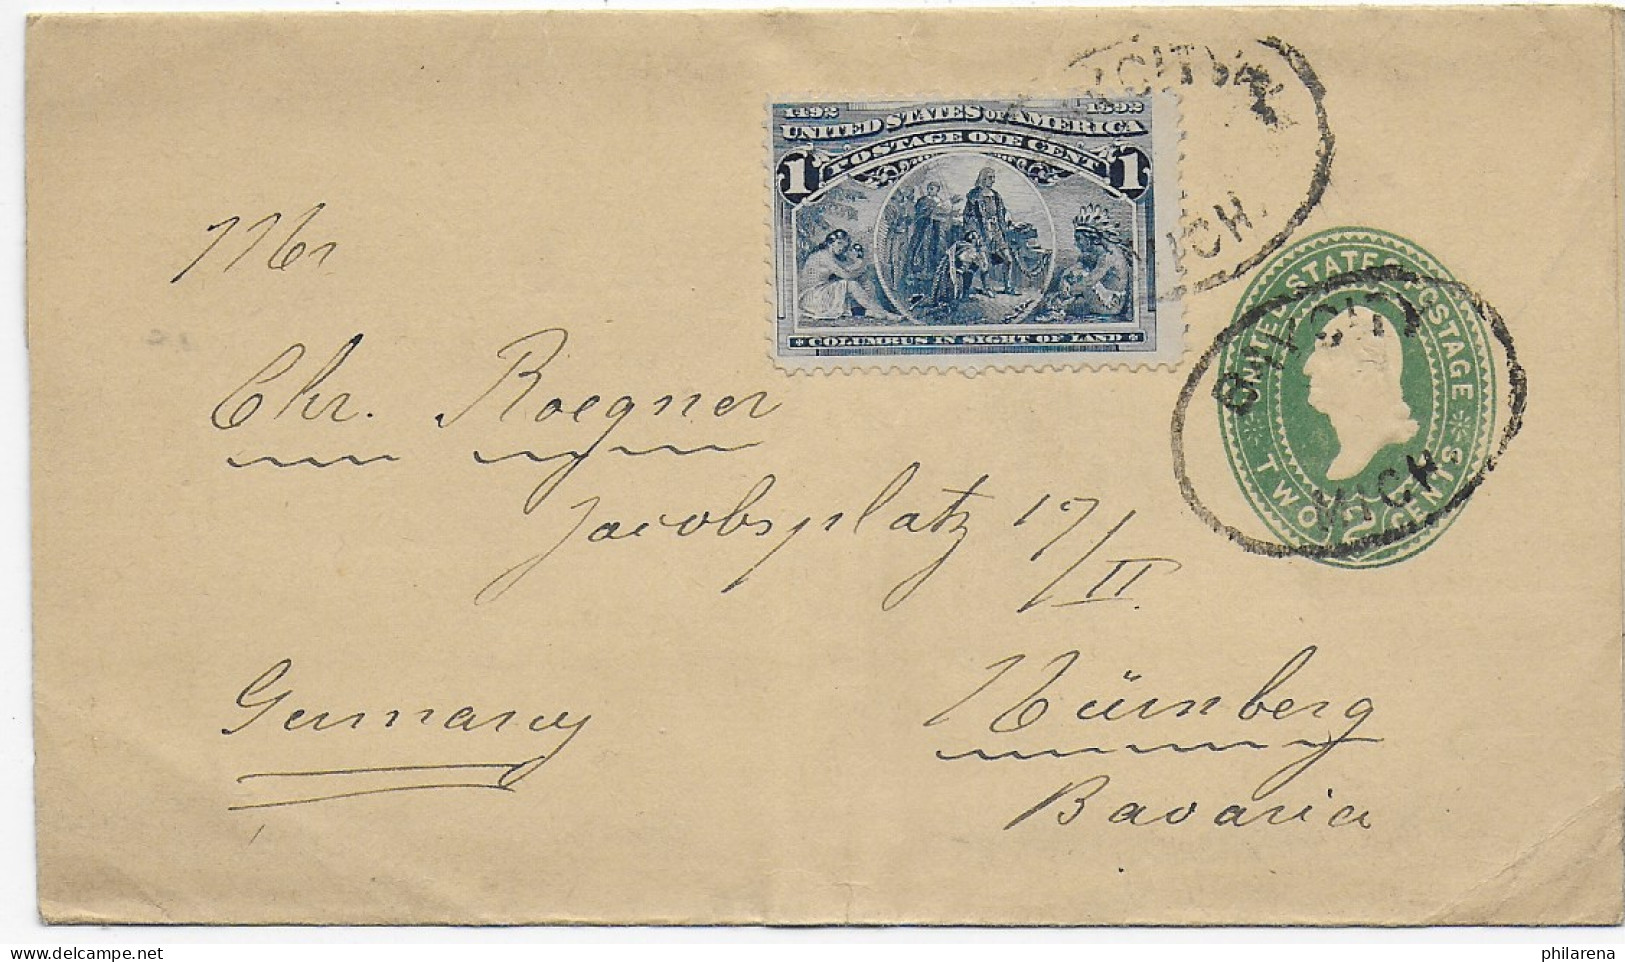 1492 1892
UNITED STATES OF AMERICA
POSTAGE ONE CENT
1 1
COLUMBUS IN SIGHT OF LAND
CITY
MICH.
UNITED STATES POSTAGE
TWO 2 CENTS
BAY CITY
MICH.
Mr
Chr. Roegner
Jacobsplatz 17/II.
Germany
Nürnberg
Bavaria
philarena